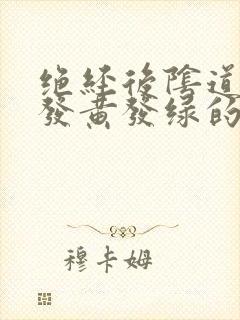 绝经后阴道
发黄发绿的
穆卡姆